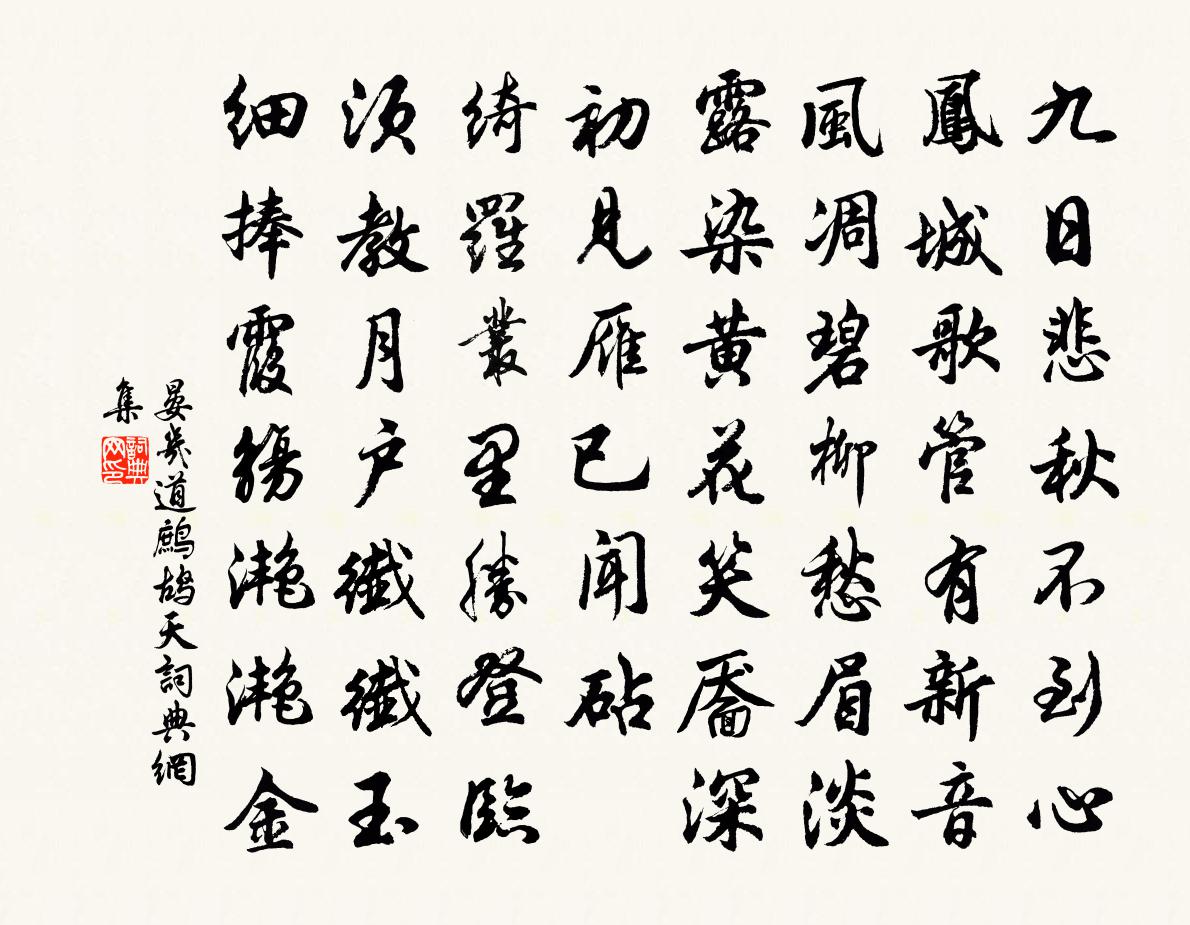 九日悲秋不到心
鳳城歌管有新音
風凋碧柳愁眉淡
露染黃花笑靨深
初見雁已聞砧
綺羅叢里勝登臨
須教月户纖纖玉
細捧霞觴灧灧金
晏幾道鷓鴣天詞典網
集
詞典
网印